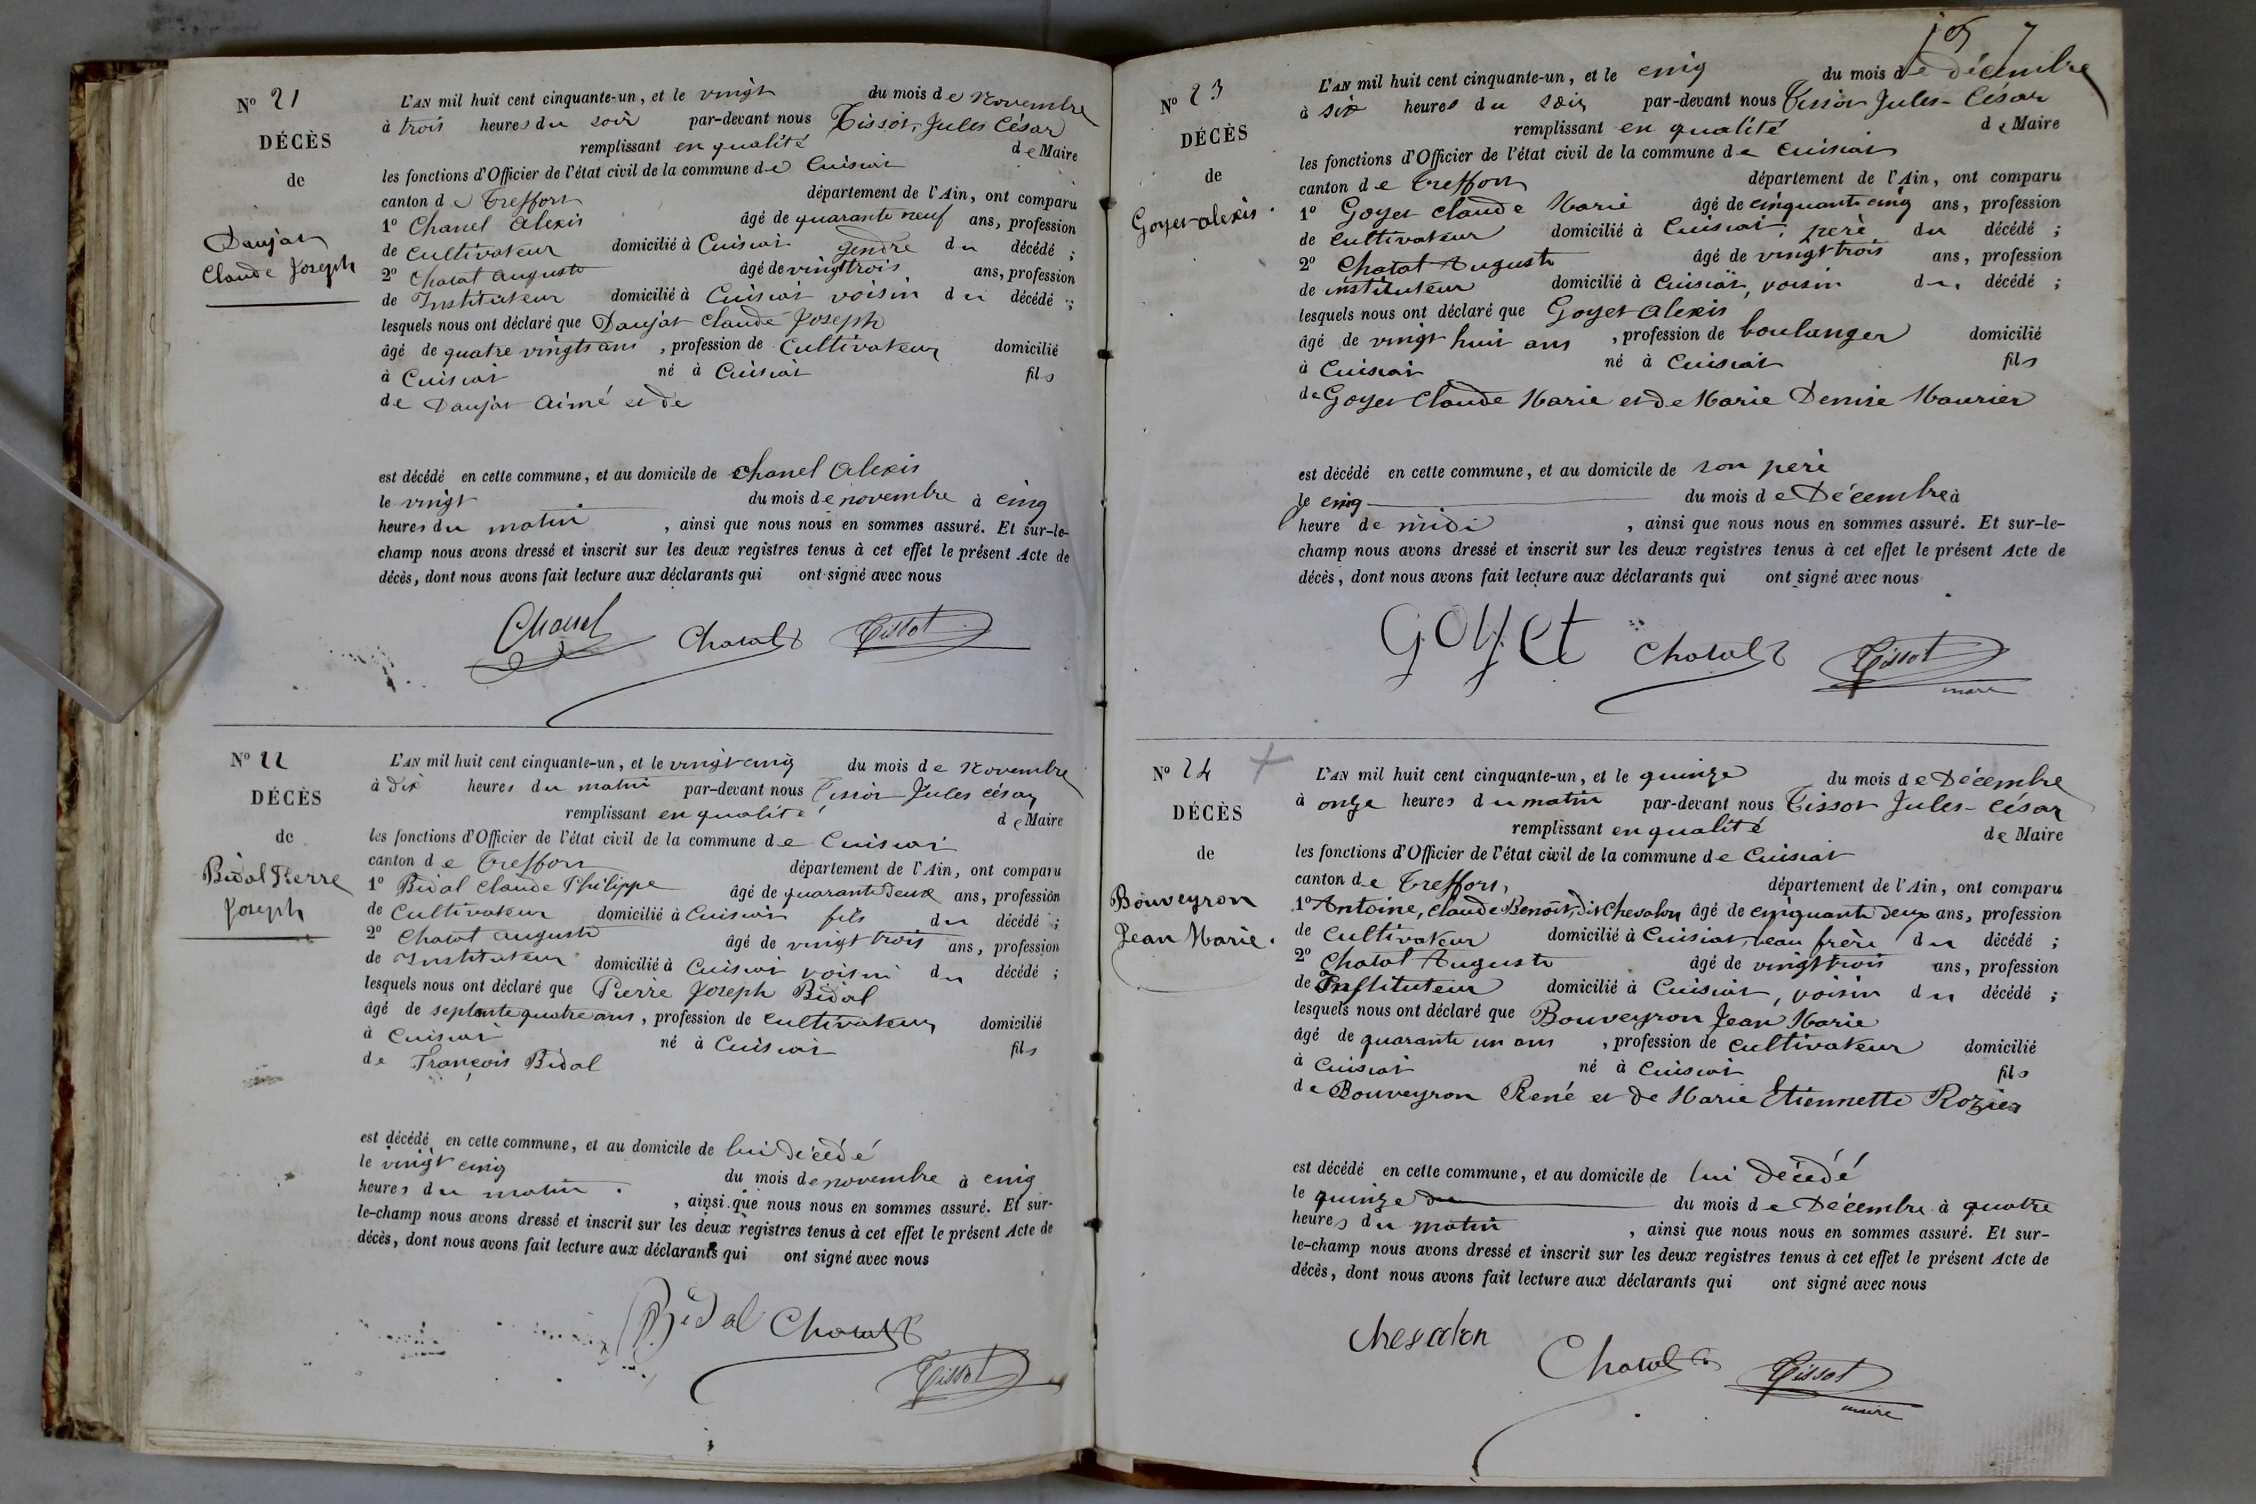 N° 21
DÉCÈS
de
Daujat
Claude Joseph
L'AN mil huit cent cinquante-un, et le vingt du mois de Novembre
à trois heures du soir par-devant nous Tissot, Jules César
remplissant en qualité de Maire
les fonctions d'Officier de l'état civil de la commune de Cuisiat
canton de Treffort département de l'Ain, ont comparu
1° Chanel Alexis âgé de quarante neuf ans, profession
de Cultivateur domicilié à Cuisiat gendre du décédé ;
2° Chatat auguste âgé de vingt trois ans, profession
de Instituteur domicilié à Cuisiat voisin du décédé ;
lesquels nous ont déclaré que Daujat Claude Joseph
âgé de quatre vingts ans, profession de Cultivateur domicilié
à Cuisiat né à Cuisiat fils
de Daujat Aimé et de
est décédé en cette commune, et au domicile de Chanel Alexis
le vingt du mois de novembre à cinq
heures du matin, ainsi que nous nous en sommes assuré. Et sur-le-
champ nous avons dressé et inscrit sur les deux registres tenus à cet effet le présent Acte de
décès, dont nous avons fait lecture aux déclarants qui ont signé avec nous
Chanel Chatat Tissot
N° 22
DÉCÈS
de
Bidal Pierre
Joseph
L'AN mil huit cent cinquante-un, et le vingt cinq du mois de Novembre
à dix heures du matin par-devant nous Tissot Jules César
remplissant en qualité de Maire
les fonctions d'Officier de l'état civil de la commune de Cuisiat
canton de Treffort département de l'Ain, ont comparu
1° Bidal Claude Philippe âgé de quarante deux ans, profession
de Cultivateur domicilié à Cuisiat fils du décédé ;
2° Chatat auguste âgé de vingt trois ans, profession
de Instituteur domicilié à Cuisiat voisin du décédé ;
lesquels nous ont déclaré que Pierre Joseph Bidal
âgé de septante quatre ans, profession de Cultivateur domicilié
à Cuisiat né à Cuisiat fils
de François Bidal
est décédé en cette commune, et au domicile de lui décédé
le vingt cinq du mois de novembre à cinq
heures du matin, ainsi que nous nous en sommes assuré. Et sur-
le-champ nous avons dressé et inscrit sur les deux registres tenus à cet effet le présent Acte de
décès, dont nous avons fait lecture aux déclarants qui ont signé avec nous
Bidal Chatat
Tissot
N° 23
DÉCÈS
de
Goyet alexis
L'AN mil huit cent cinquante-un, et le cinq du mois de décembre
à six heures du soir par-devant nous Tissot Jules-César
remplissant en qualité de Maire
les fonctions d'Officier de l'état civil de la commune de Cuisiat
canton de Treffort département de l'Ain, ont comparu
1° Goyet Claude Marie âgé de cinquante cinq ans, profession
de Cultivateur domicilié à Cuisiat, père du décédé ;
2° Chatat Auguste âgé de vingt trois ans, profession
de instituteur domicilié à Cuisiat, voisin du décédé ;
lesquels nous ont déclaré que Goyet Alexis
âgé de vingt huit ans, profession de boulanger domicilié
à Cuisiat né à Cuisiat fils
de Goyet Claude Marie et de Marie Denise Maurier
est décédé en cette commune, et au domicile de son père
le cinq du mois de Décembre à
heure de midi, ainsi que nous nous en sommes assuré. Et sur-le-
champ nous avons dressé et inscrit sur les deux registres tenus à cet effet le présent Acte de
décès, dont nous avons fait lecture aux déclarants qui ont signé avec nous
Goyet Chatat Tissot
maire
N° 24
DÉCÈS
de
Bouveyron
Jean Marie.
L'AN mil huit cent cinquante-un, et le quinze du mois de Décembre
à onze heures du matin par-devant nous Tissot Jules-César
remplissant en qualité de Maire
les fonctions d'Officier de l'état civil de la commune de Cuisiat
canton de Treffort, département de l'Ain, ont comparu
1° Antoine, Claude Benoît, dit Chevalon âgé de cinquante deux ans, profession
de Cultivateur domicilié à Cuisiat, beau frère du décédé ;
2° Chatat Auguste âgé de vingt trois ans, profession
de Instituteur domicilié à Cuisiat, voisin du décédé ;
lesquels nous ont déclaré que Bouveyron Jean Marie
âgé de quarante un ans, profession de Cultivateur domicilié
à Cuisiat né à Cuisiat fils
de Bouveyron René et de Marie Etiennette Rozier
est décédé en cette commune, et au domicile de lui décédé
le quinze du mois de Décembre à quatre
heures du matin, ainsi que nous nous en sommes assuré. Et sur-
le-champ nous avons dressé et inscrit sur les deux registres tenus à cet effet le présent Acte de
décès, dont nous avons fait lecture aux déclarants qui ont signé avec nous
Chevalon
Chatat Tissot
maire